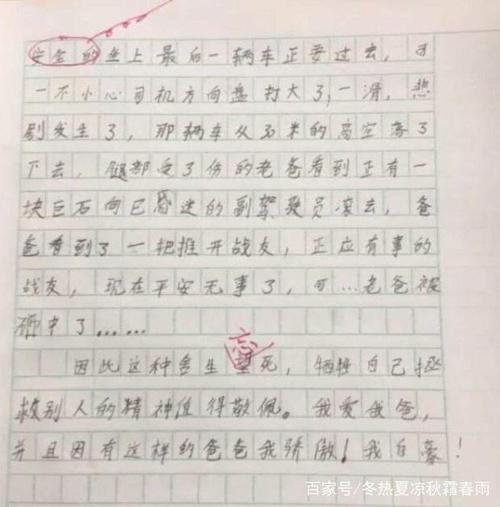 安全的坐上最后一辆车正要过去，可
一不小心司机方向盘打大了，一滑，悲
剧发生了，那辆车从30米的高空落了
下去，腿部受了伤的老爸看到正有一
块巨石向已昏迷的副驾驶员滚去，爸
爸看到了一把推开战友，正应有事的
战友，现在平安无事了，可…老爸被
砸中了……
忘
因此这种舍生望死，牺牲自己拯
救别人的精神值得敬佩。我爱我爸，
并且因有这样的爸爸我骄傲！我自豪！
百家号/冬热夏凉秋霜春雨